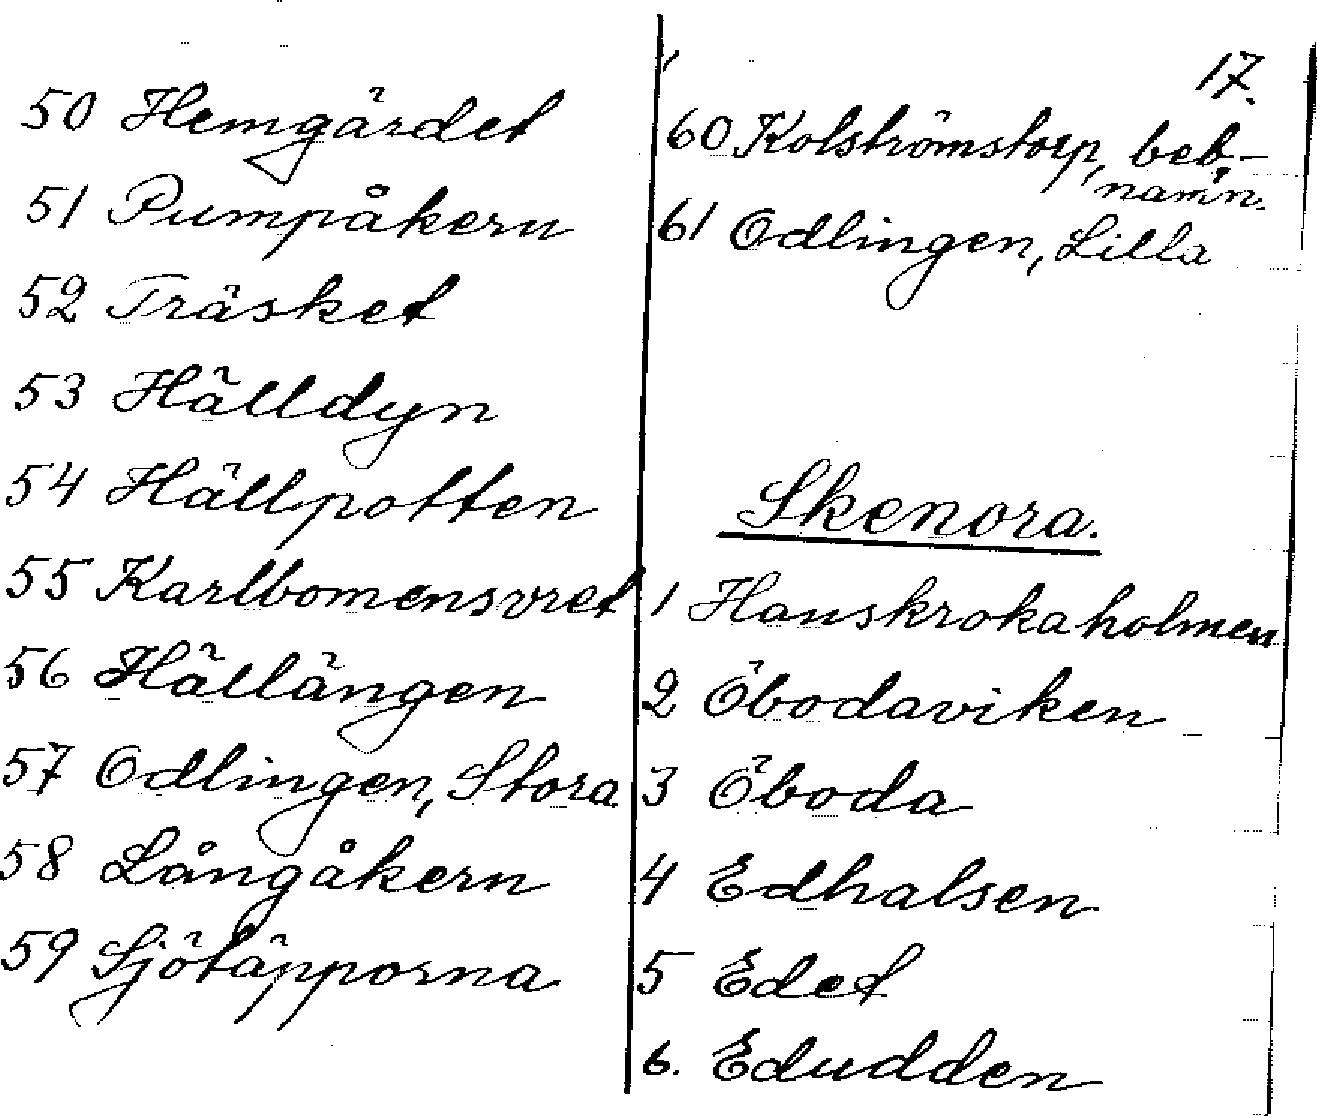 50 Hemgärdet
51 Pumpåkern
52 Träsket
53 Hälldyn
54 Hällpotten
55 Karlbomensvret
56 Hällängen
57 Odlingen, Stora
58 Långåkern
59 Sjötäpporna
17.
60 Kolströmstorp, beb.-
namn.
61 Odlingen, Lilla
Skenora.
1 Hanskrokaholmen
2 Öbodaviken
3 Öboda
4 Edhalsen
5 Edet
6. Edudden